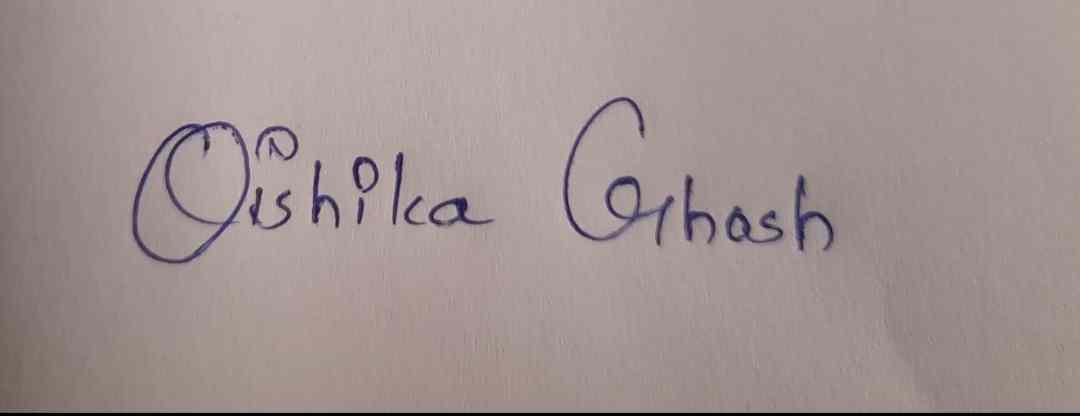 Oishika Ghash